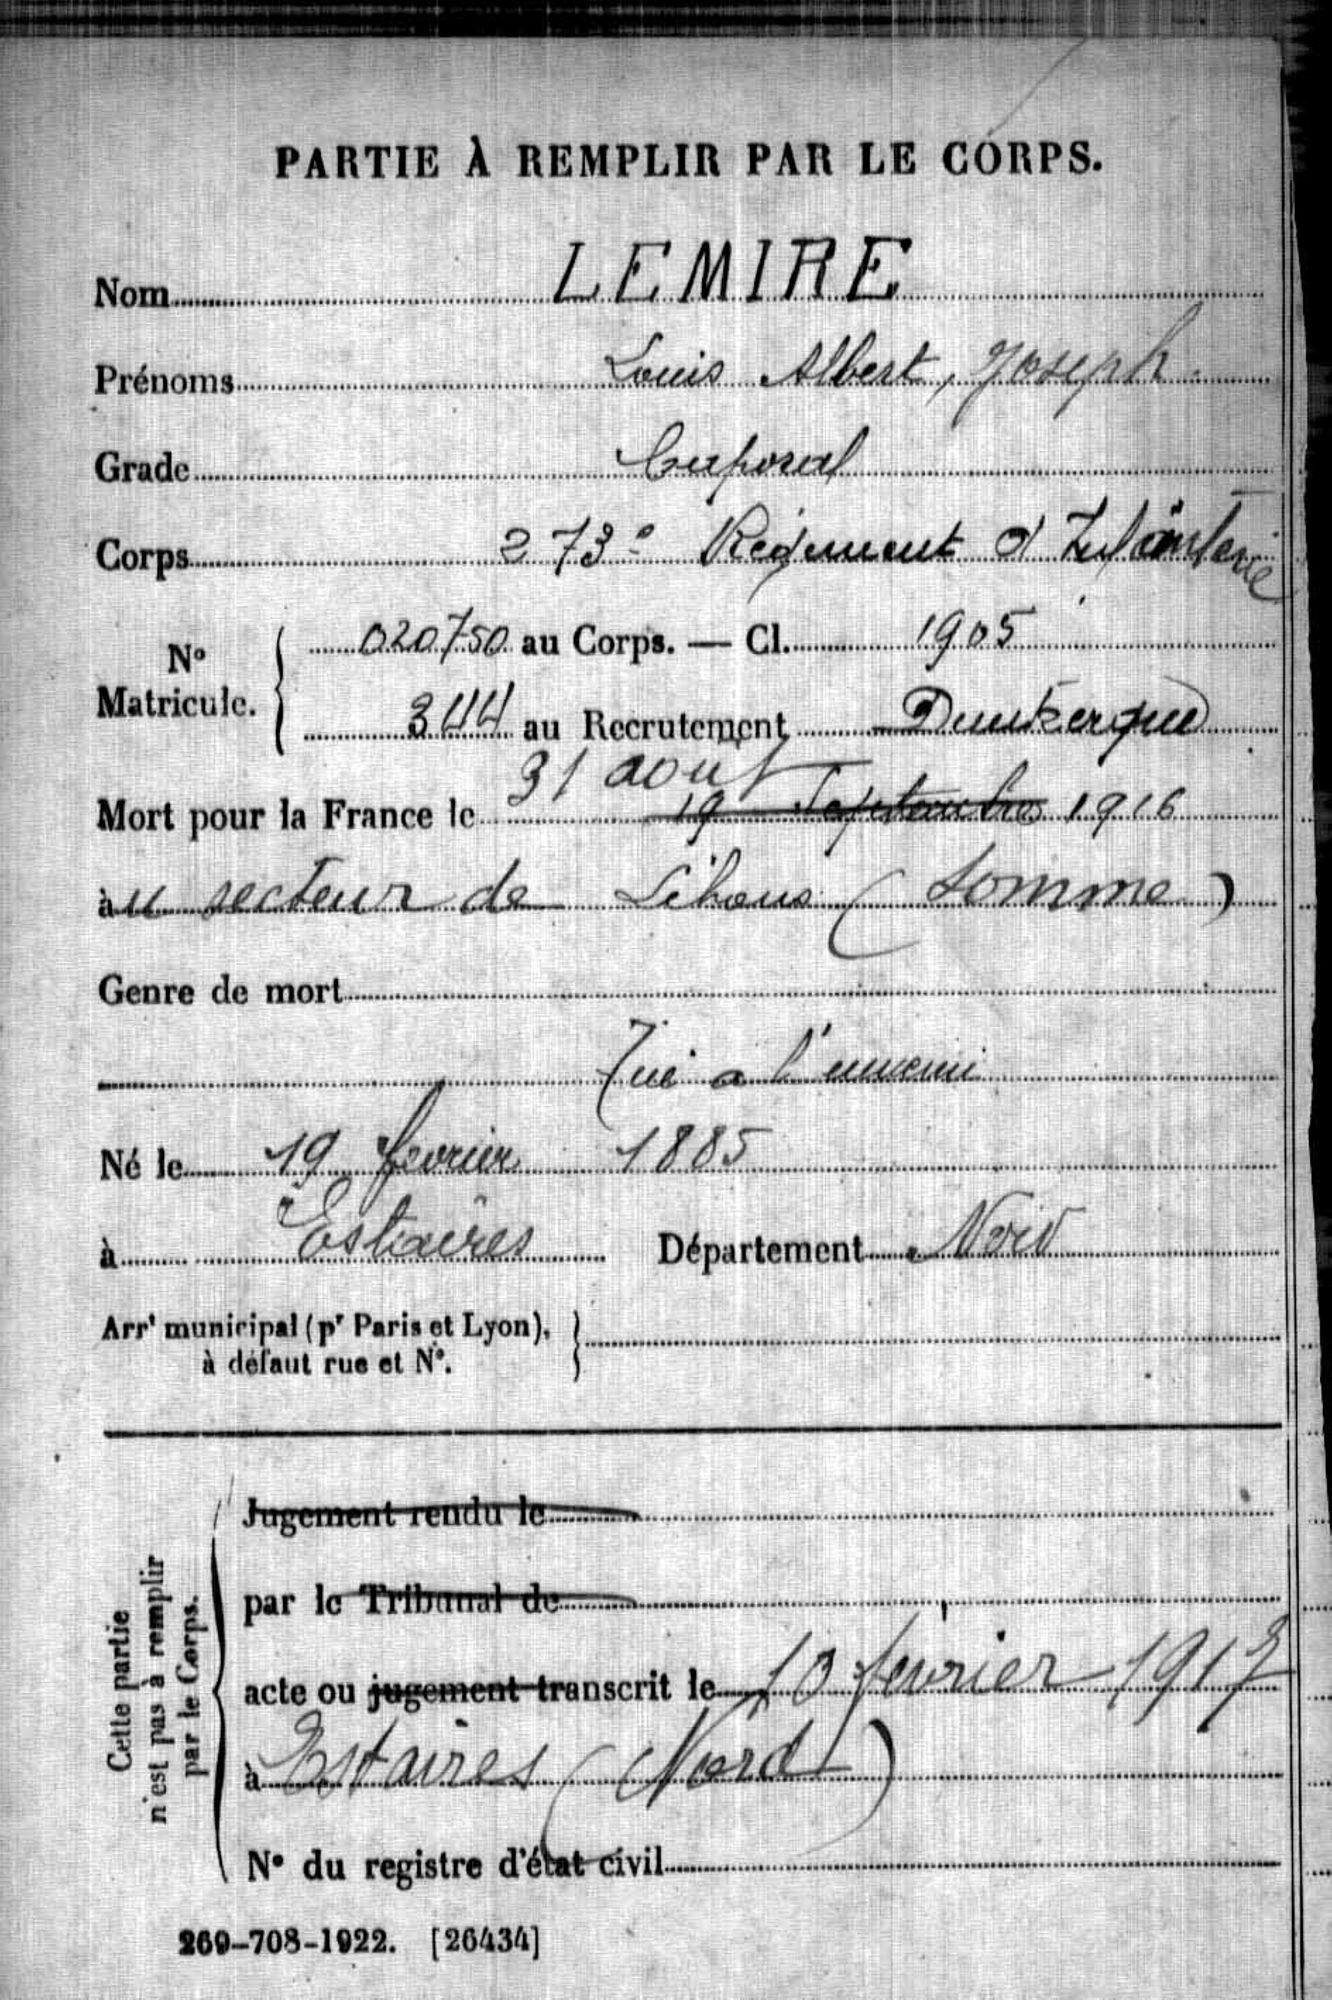 PARTIE À REMPLIR PAR LE CORPS.
Nom LEMIRE
Prénoms Louis Albert, Joseph.
Grade Caporal
Corps 273e Régiment d'Infanterie
No Matricule. 020750 au Corps. — Cl. 1905
344 au Recrutement Dunkerque
31 août
Mort pour la France le 19 Septembre 1916
àu secteur de Lihons (Somme)
Genre de mort
Tué a l'ennemi
Né le 19 février 1885
à Estaires Département Nord
Arrt municipal (pr Paris et Lyon),
à défaut rue et No.
Cette partie
n'est pas à remplir
par le Corps.
Jugement rendu le
par le Tribunal de
acte ou jugement transcrit le 10 février 1917
à Estaires (Nord)
No du registre d'état civil
269-708-1922. [26434]